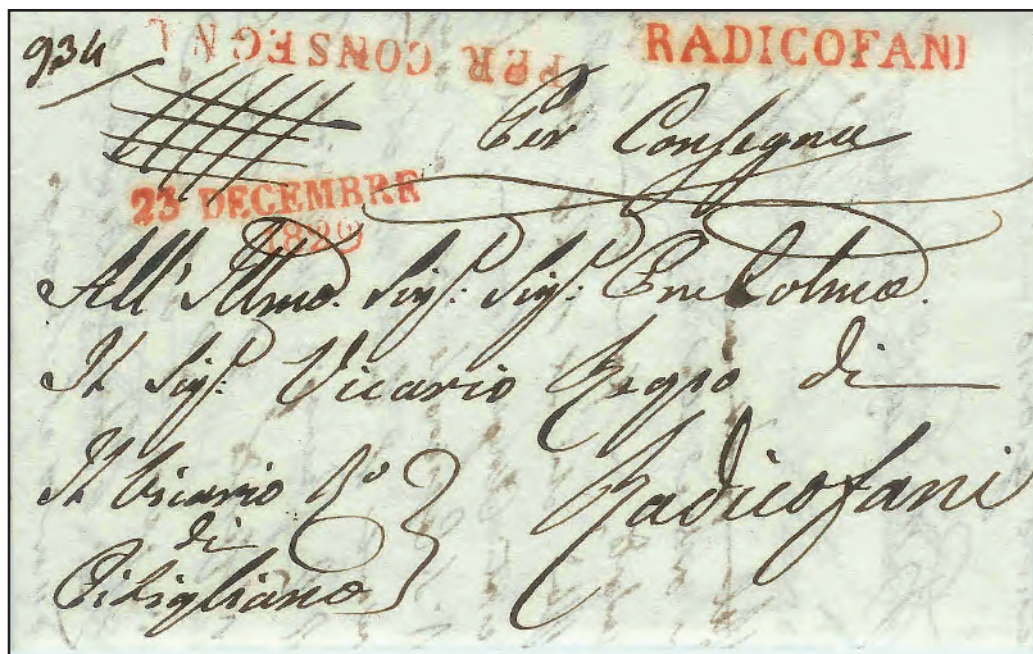 934 PER CONSEGNA RADICOFANI
Per Consegna
23 DECEMBRE
1829
All' Illmo. Sigr: Sigr: Pne Colmo.
Il Sigr: Vicario Regio di
Radicofani
Il Vicario Ro
di
Pitigliano